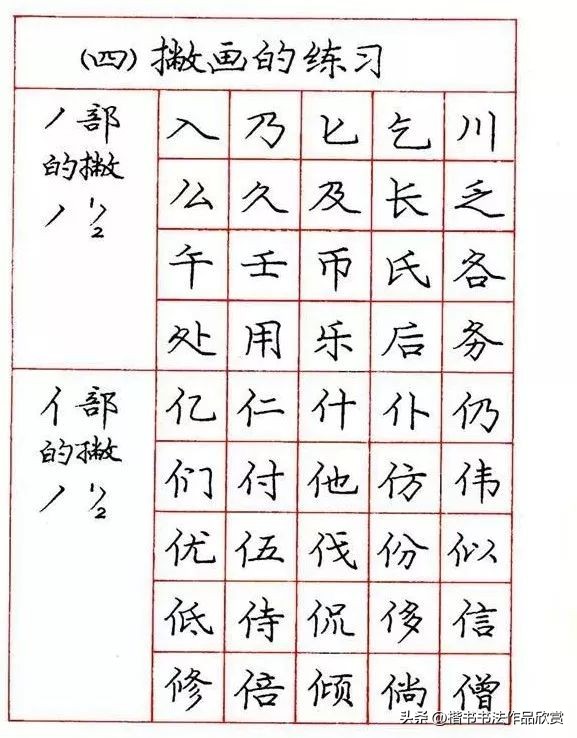 (四)撇画的练习
丿部的撇
丿 1 1/2
入 乃 匕 乞 川
么 久 及 长 乏
午 壬 币 氏 各
处 用 乐 后 务
亻部的撇
丿 1 1/2
亿 仁 什 仆 仍
们 付 他 仿 伟
优 伍 伐 份 似
低 侍 侃 侈 信
修 倍 倾 倘 僧
头条 @楷书书法作品欣赏